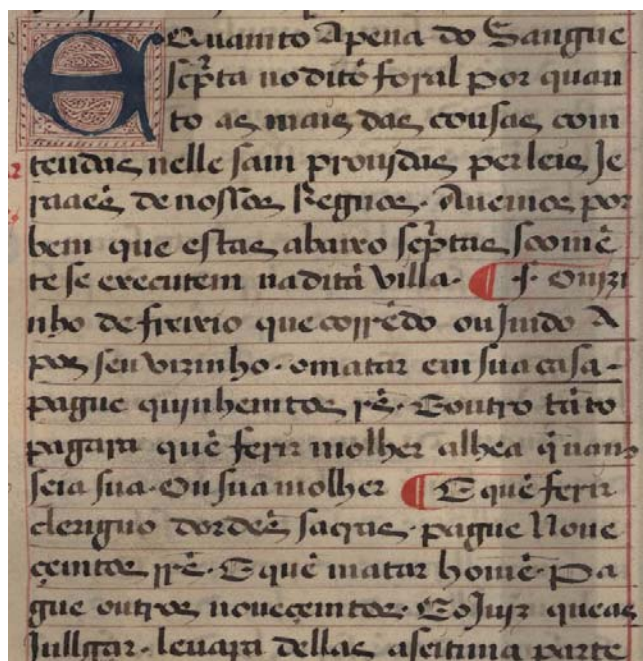 E Quamto A pena do Sangue
scp̃ta no dito foral por quan
to as mais das cousas com
tendas nelle sam prouidas per leis Je
raaes de nossos Regnos. Auemos por
bem que estas abaixo scp̃tas soomẽ
te se executem na dita villa. ¶ s. O uizi
nho de frixio que corrẽdo ou Jnndo A
pos seu vizinho. o matar em sua casa.
pague quinhemtos rs̃. E outro tãto
pagara quẽ ferir molher alhea q̃ nam
seia sua. Ou sua molher ¶ E quẽ ferir
cleriguo dordẽs sacras. pague Noue
çemtos rrs̃. E quẽ matar homẽ. Pa
gue outros noueçemtos. E o Juiz que as
Jullgar. leuara dellas a seitima parte